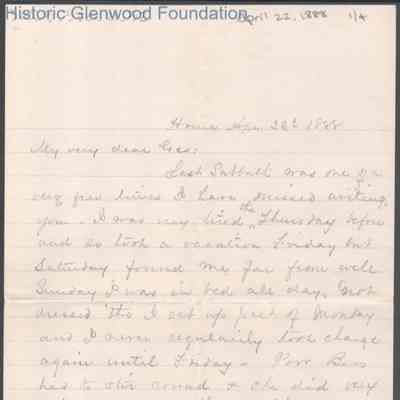 Historic Glenwood Foundation
April 22, 1888 1/4
Home Apr. 22d 1888
My very dear Geo:
Last Sabbath was one of a
very few times I have missed writing
you. I was very tired the Thursday before
and so took a vacation Friday but
Saturday found me far from well.
Sunday I was in bed all day. Not
dressed tho I sat up part of Monday
and I never regularily took charge
again until Friday. Poor Bess
had to stir round & she did very